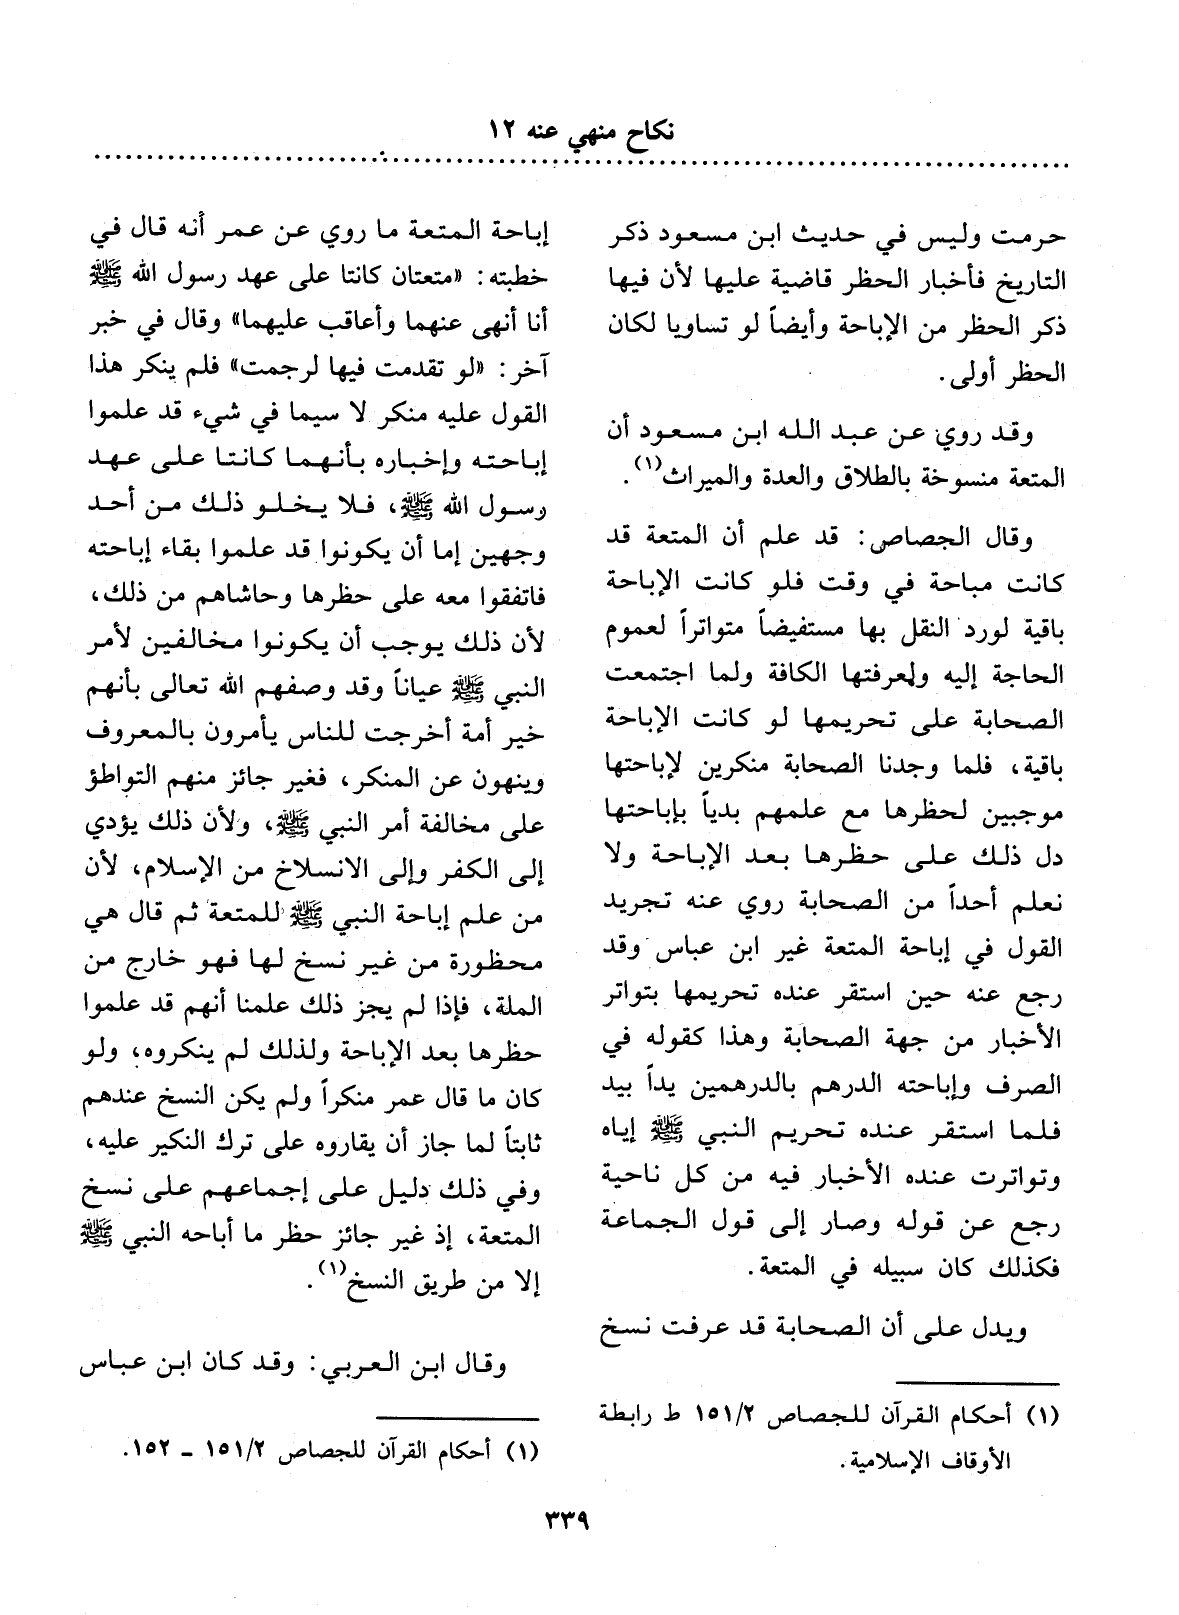 نكاح منهي عنه ١٢
حرمت وليس في حديث ابن مسعود ذكر
التاريخ فأخبار الحظر قاضية عليها لأن فيها
ذكر الحظر من الإباحة وأيضاً لو تساويا لكان
الحظر أولى.
وقد روي عن عبد الله ابن مسعود أن
المتعة منسوخة بالطلاق والعدة والميراث(١).
وقال الجصاص: قد علم أن المتعة قد
كانت مباحة في وقت فلو كانت الإباحة
باقية لورد النقل بها مستفيضاً متواتراً لعموم
الحاجة إليه ولعرفتها الكافة ولما اجتمعت
الصحابة على تحريمها لو كانت الإباحة
باقية، فلما وجدنا الصحابة منكرين لإباحتها
موجبين لحظرها مع علمهم بدياً بإباحتها
دل ذلك على حظرها بعد الإباحة ولا
نعلم أحداً من الصحابة روي عنه تجريد
القول في إباحة المتعة غير ابن عباس وقد
رجع عنه حين استقر عنده تحريمها بتواتر
الأخبار من جهة الصحابة وهذا كقوله في
الصرف وإباحته الدرهم بالدرهمين يداً بيد
فلما استقر عنده تحريم النبي ﷺ إياه
وتواترت عنده الأخبار فيه من كل ناحية
رجع عن قوله وصار إلى قول الجماعة
فكذلك كان سبيله في المتعة.
ويدل على أن الصحابة قد عرفت نسخ
(١) أحكام القرآن للجصاص ١٥١/٢ ط رابطة
الأوقاف الإسلامية.
إباحة المتعة ما روي عن عمر أنه قال في
خطبته: «متعتان كانتا على عهد رسول الله ﷺ
أنا أنهى عنهما وأعاقب عليهما» وقال في خبر
آخر: «لو تقدمت فيها لرجمت» فلم ينكر هذا
القول عليه منكر لا سيما في شيء قد علموا
إباحته وإخباره بأنهما كانتا على عهد
رسول الله ﷺ، فلا يخلو ذلك من أحد
وجهين إما أن يكونوا قد علموا بقاء إباحته
فاتفقوا معه على حظرها وحاشاهم من ذلك،
لأن ذلك يوجب أن يكونوا مخالفين لأمر
النبي ﷺ عياناً وقد وصفهم الله تعالى بأنهم
خير أمة أخرجت للناس يأمرون بالمعروف
وينهون عن المنكر، فغير جائز منهم التواطؤ
على مخالفة أمر النبي ﷺ، ولأن ذلك يؤدي
إلى الكفر وإلى الانسلاخ من الإسلام، لأن
من علم إباحة النبي ﷺ للمتعة ثم قال هي
محظورة من غير نسخ لها فهو خارج من
الملة، فإذا لم يجز ذلك علمنا أنهم قد علموا
حظرها بعد الإباحة ولذلك لم ينكروه، ولو
كان ما قال عمر منكراً ولم يكن النسخ عندهم
ثابتاً لما جاز أن يقاروه على ترك النكير عليه،
وفي ذلك دليل على إجماعهم على نسخ
المتعة، إذ غير جائز حظر ما أباحه النبي ﷺ
إلا من طريق النسخ(١).
وقال ابن العربي: وقد كان ابن عباس
(١) أحكام القرآن للجصاص ١٥١/٢ ـ ١٥٢.
٣٣٩